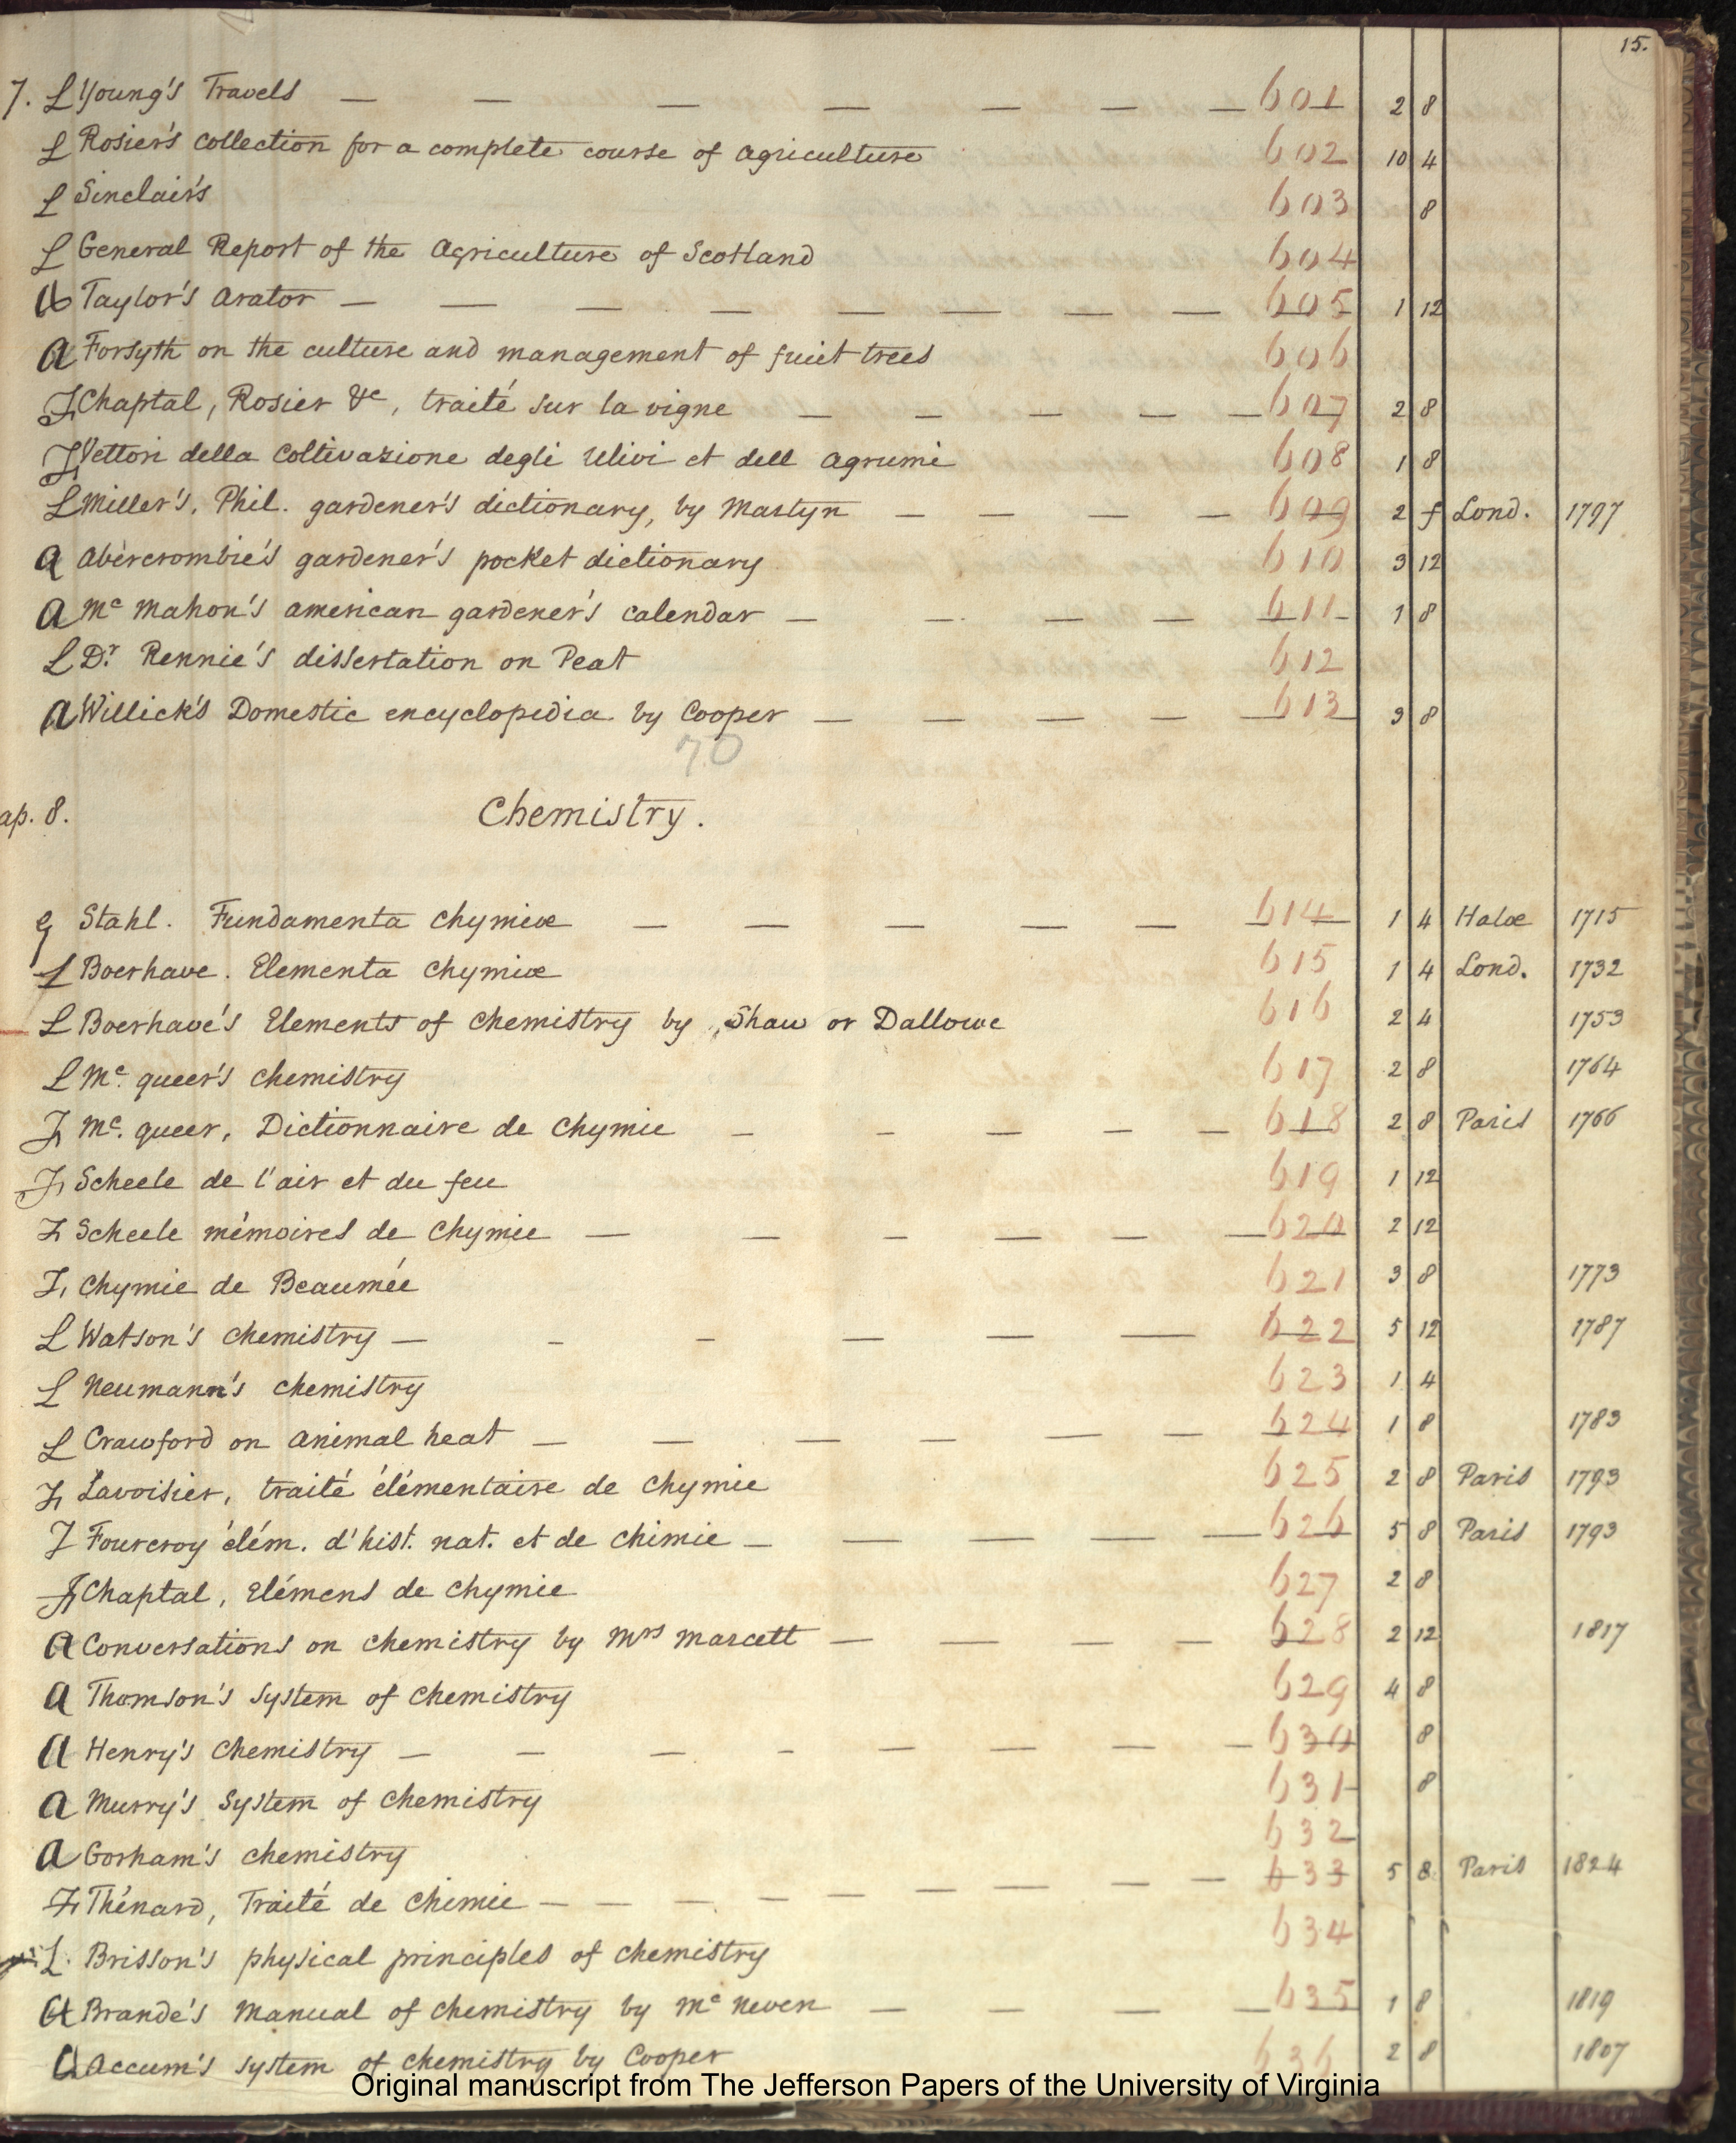 15.
7. L Young's Travels — — — — — — — 601 2 8
L Rosier's collection for a complete course of agriculture 602 10 4
L Sinclair's 603 8
L General Report of the Agriculture of Scotland 604
A Taylor's Arator — — — — — — — — 605 1 12
A Forsyth on the culture and management of fruit trees 606
F Chaptal, Rosier &c, traité sur la vigne — — — — — 607 2 8
F Vettori della Coltivazione degli Ulivi et dell agrumi 608 1 8
L Miller's, Phil. gardener's dictionary, by Martyn — — — — 609 2 f Lond. 1797
A Abercrombie's gardener's pocket dictionary 610 3 12
A Mc Mahon's american gardener's calendar — — — — 611 1 8
L Dr. Rennie's dissertation on Peat 612
A Willick's Domestic encyclopedia by Cooper — — — — 613 3 8
70
ap. 8. Chemistry.
g Stahl. Fundamenta chymiæ — — — — — 614 1 4 Halæ 1715
L Boerhave. Elementa chymiæ 615 1 4 Lond. 1732
L Boerhave's Elements of chemistry by Shaw or Dallowe 616 2 4 1753
L Mc. queer's chemistry 617 2 8 1764
F Mc. queer, Dictionnaire de chymie — — — — — 618 2 8 Paris 1766
F Scheele de l'air et du feu 619 1 12
F Scheele mémoires de chymie — — — — — — 620 2 12
F Chymie de Beaumée 621 3 8 1773
L Watson's chemistry — — — — — — 622 5 12 1787
L Neumann's chemistry 623 1 4
L Crawford on animal heat — — — — — — 624 1 8 1783
F Lavoisier, traité élémentaire de chymie 625 2 8 Paris 1793
F Fourcroy élém. d'hist. nat. et de chimie — — — — — 626 5 8 Paris 1793
F Chaptal, Elémens de chymie 627 2 8
A Conversations on chemistry by Mrs Marcett — — — — 628 2 12 1817
A Thomson's system of chemistry 629 4 8
A Henry's chemistry — — — — — — — — 630 8
A Murry's System of chemistry 631 8
A Gorham's chemistry 632
F Thénard, Traité de chimie — — — — — — — — — 633 5 8 Paris 1824
L. Brisson's physical principles of chemistry 634
A Brande's Manual of chemistry by Mc Neven — — — — 635 1 8 1819
A Accum's system of chemistry by Cooper 636 2 8 1807
Original manuscript from The Jefferson Papers of the University of Virginia